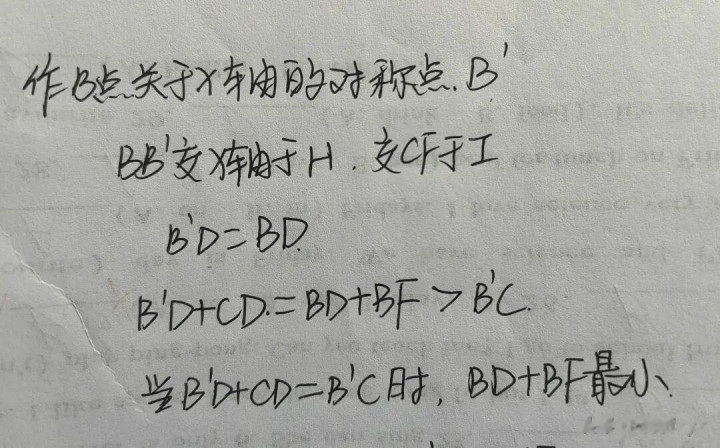 作B点关于x轴的对称点.B'
BB'交x轴于H.交CF于I
B'D=BD.
B'D+CD.=BD+BF>B'C.
当B'D+CD=B'C时,BD+BF最小.